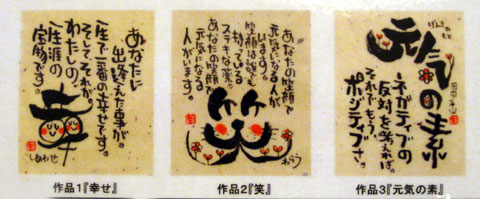 あなたに
出逢えた事が。
一生で一番の幸せです。
そして、それが。
わたしの、
一生涯の
宝物です。
幸
しあわせ
作品1『幸せ』
あなたの笑顔で
元気になる人が
います。
笑顔は誰でも
持っている
ステキな薬。
あなたの笑顔で
元気になる
人がいます。
笑
わらう
作品2『笑』
げんきのもと
元気の素
ネガティブの
反対を考えれば。
それでもう、
ポジティブさ。
作品3『元気の素』